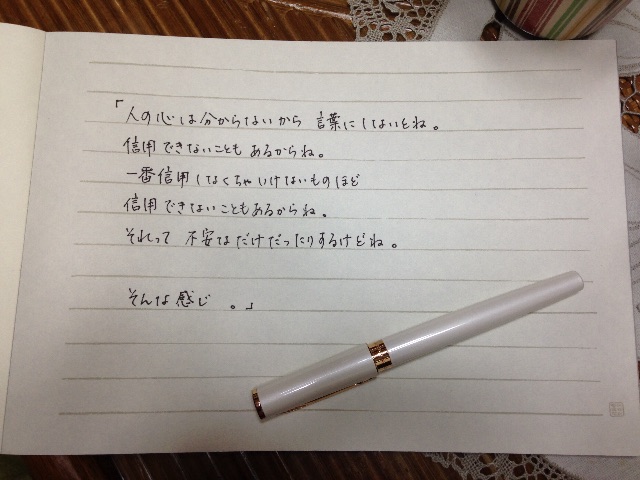 「人の心は分からないから 言葉にしないとね。
信用できないことも あるからね。
一番信用しなくちゃいけないものほど
信用できないこともあるからね。
それって 不安なだけだったりするけどね。
そんな感じ 。」